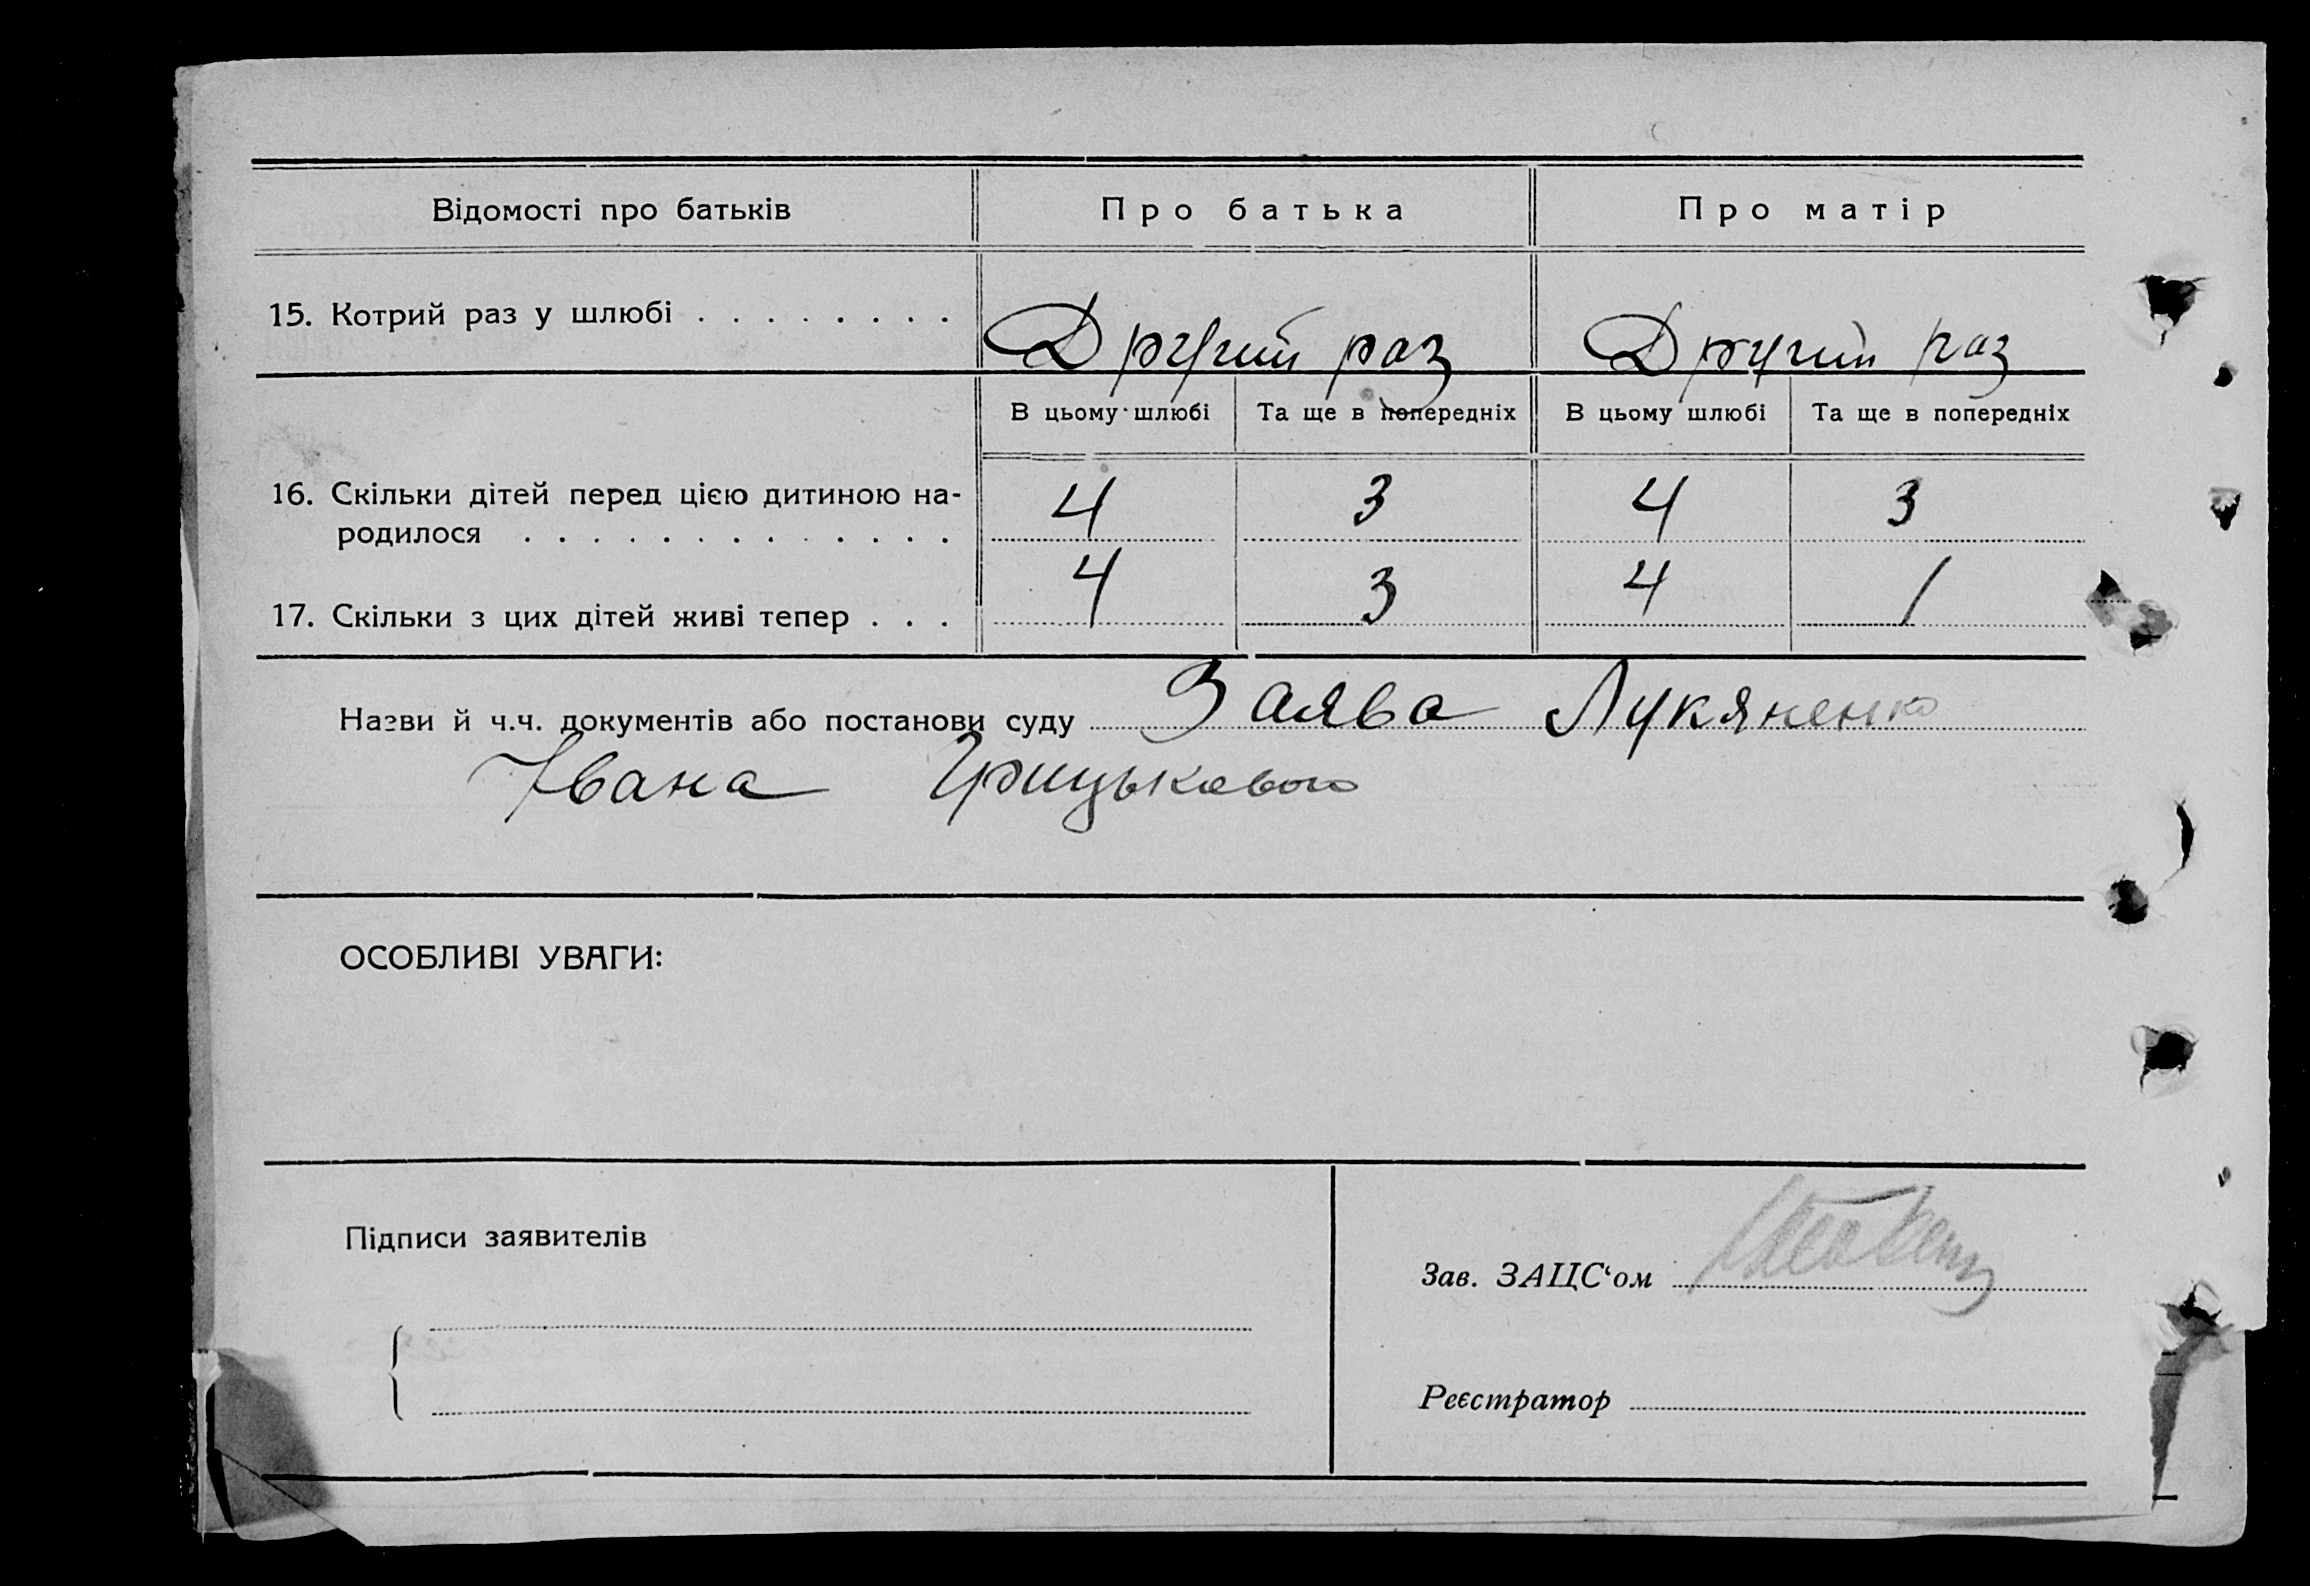 Відомості про батьків Про батька Про матір
15. Котрий раз у шлюбі . . . . . . . . Другий раз Другий раз
В цьому шлюбі Та ще в попередніх В цьому шлюбі Та ще в попередніх
16. Скільки дітей перед цією дитиною на- 4 3 4 3
родилося . . . . . . . . . . . . .
17. Скільки з цих дітей живі тепер . . . 4 3 4 1
Назви й ч.ч. документів або постанови суду Заява Лукяненко
Івана Грицькового
ОСОБЛИВІ УВАГИ:
Підписи заявителів
Зав. ЗАЦС‘ом
Реєстратор